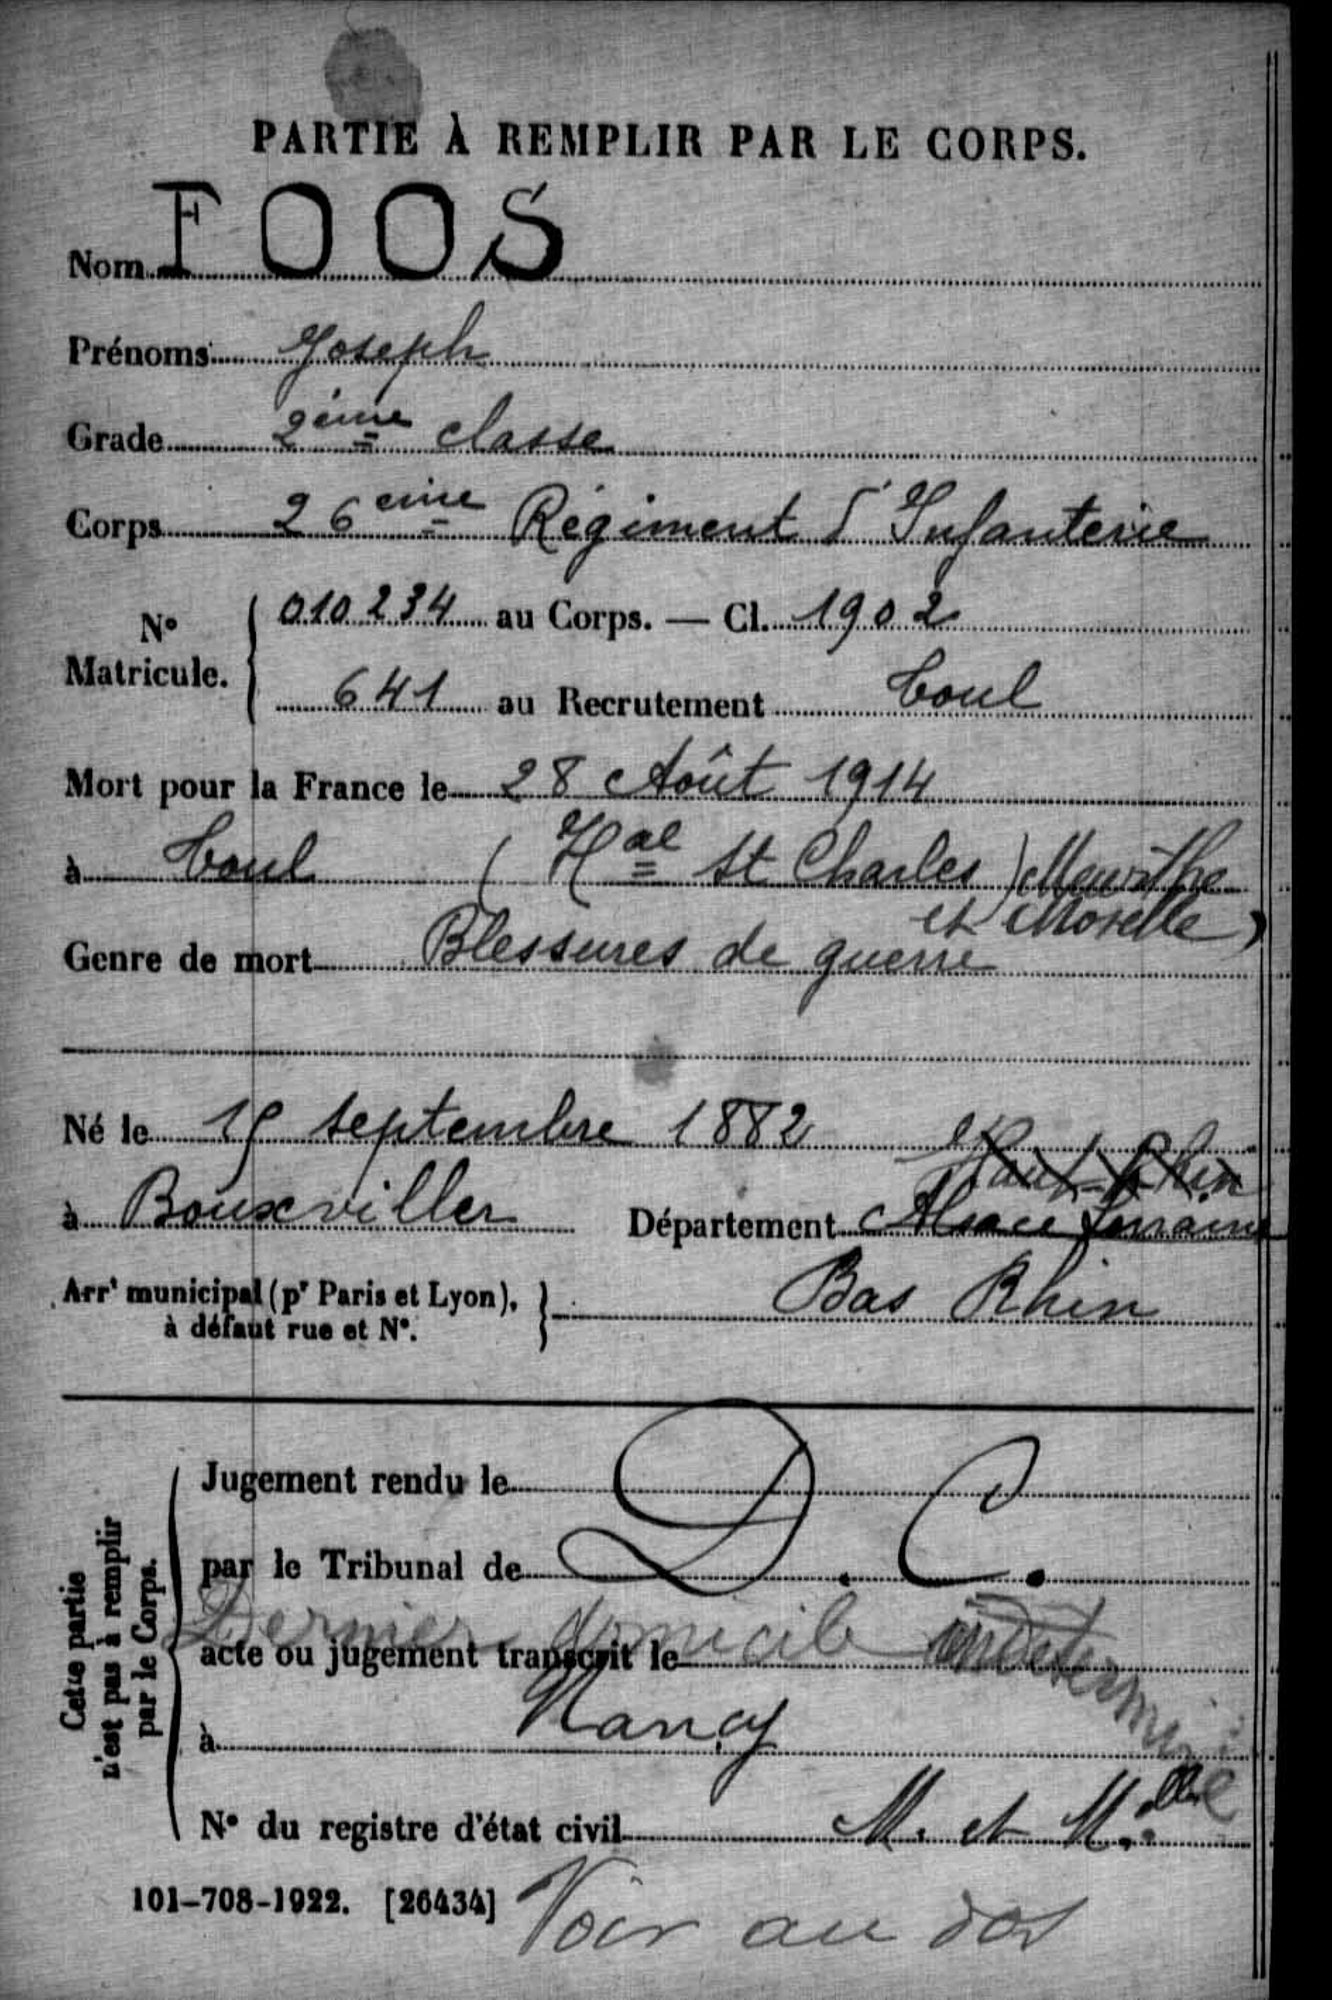 PARTIE À REMPLIR PAR LE CORPS.
Nom FOOS
Prénoms Joseph
Grade 2ème classe
Corps 26ème Régiment d'Infanterie
N° Matricule. 010234 au Corps. — Cl. 1902
641 au Recrutement Toul
Mort pour la France le 28 Août 1914
à Toul (Hal St Charles) Meurthe
et Moselle)
Genre de mort Blessures de guerre
Né le 15 septembre 1882
Haut-Rhin
à Bouxviller Département Alsace Lorraine
Arrt municipal (pr Paris et Lyon), à défaut rue et N°. Bas Rhin
Cette partie n'est pas à remplir par le Corps.
Jugement rendu le
par le Tribunal de D. C.
Dernier domicile indéterminé
acte ou jugement transcrit le
à Nancy
N° du registre d'état civil M. et M.lle
101-708-1922. [26434] Voir au dos